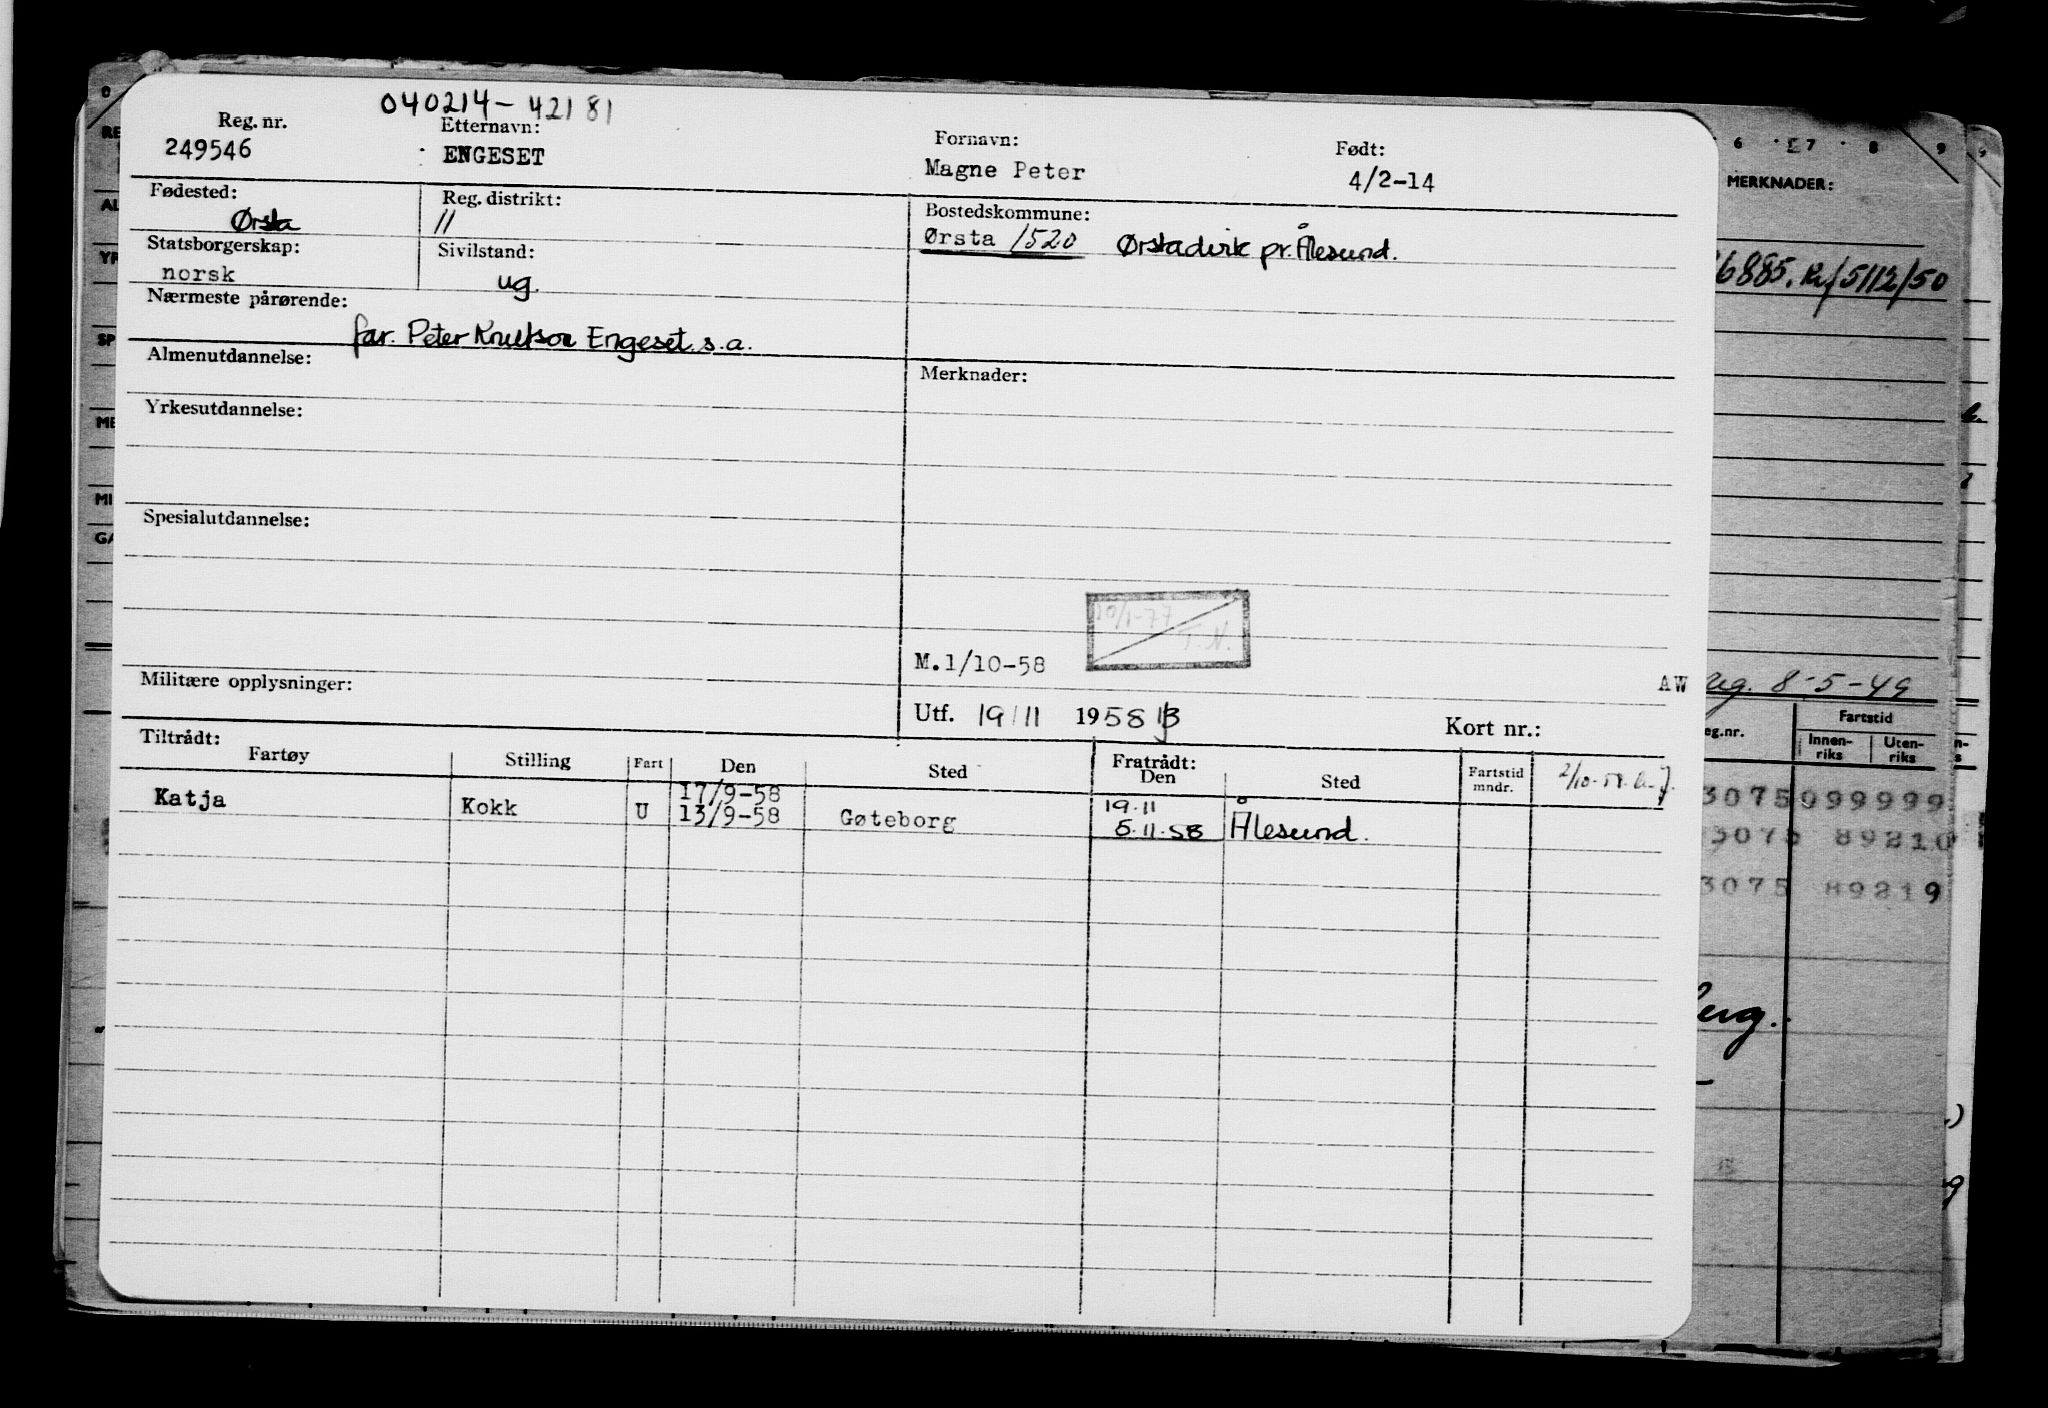 040214-42181
Reg. nr. Etternavn: Fornavn: Født:
249546 ENGESET Magne Peter 4/2-14
Fødested: Reg. distrikt: Bostedskommune:
Ørsta 11 Ørsta 1520 Ørstadvik pr. Ålesund.
Statsborgerskap: Sivilstand:
norsk ug.
Nærmeste pårørende:
far. Peter Knutson Engeset. s.a.
Almenutdannelse: Merknader:
Yrkesutdannelse:
Spesialutdannelse:
10/1-77
T.N.
M.1/10-58
Militære opplysninger: AW
Utf. 19/11 1958 Kort nr.:
Tiltrådt: Fratrådt:
Fartøy Stilling Fart Den Sted Den Sted Fartstid mndr. 2/10-58
17/9-58 19.11
Katja Kokk U 13/9-58 Gøteborg 5.11.58 Ålesund.
6 7 8 9
MERKNADER:
6885. 5/12/50
Reg. 8-5-49
eg.nr. Fartstid
Innen-riks Uten-riks
3075 099999
3075 89210
3075 89219